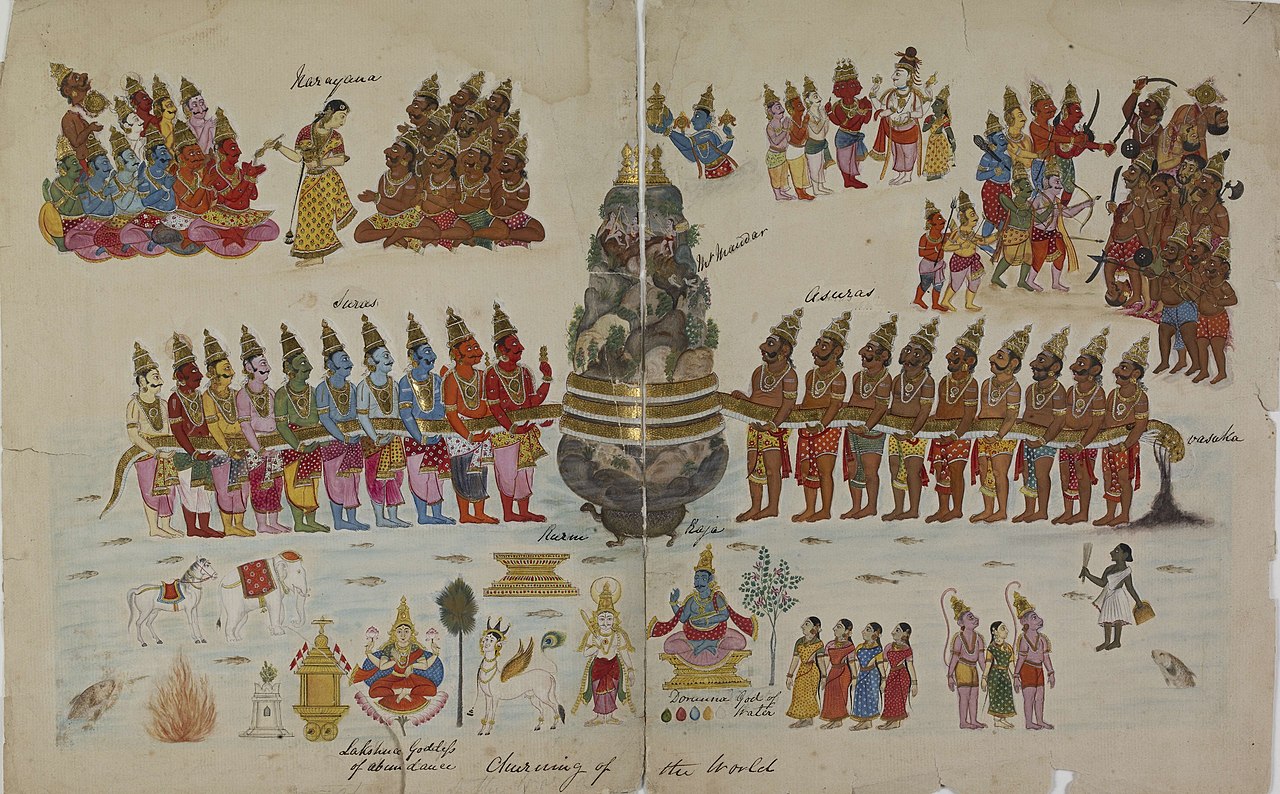 7
Narayana
Mt Mandar
Suras
Asuras
vasuka
Kurm Raja
Dorunna God of
Water
Lakshmi Goddess
of abundance
Churning of the World